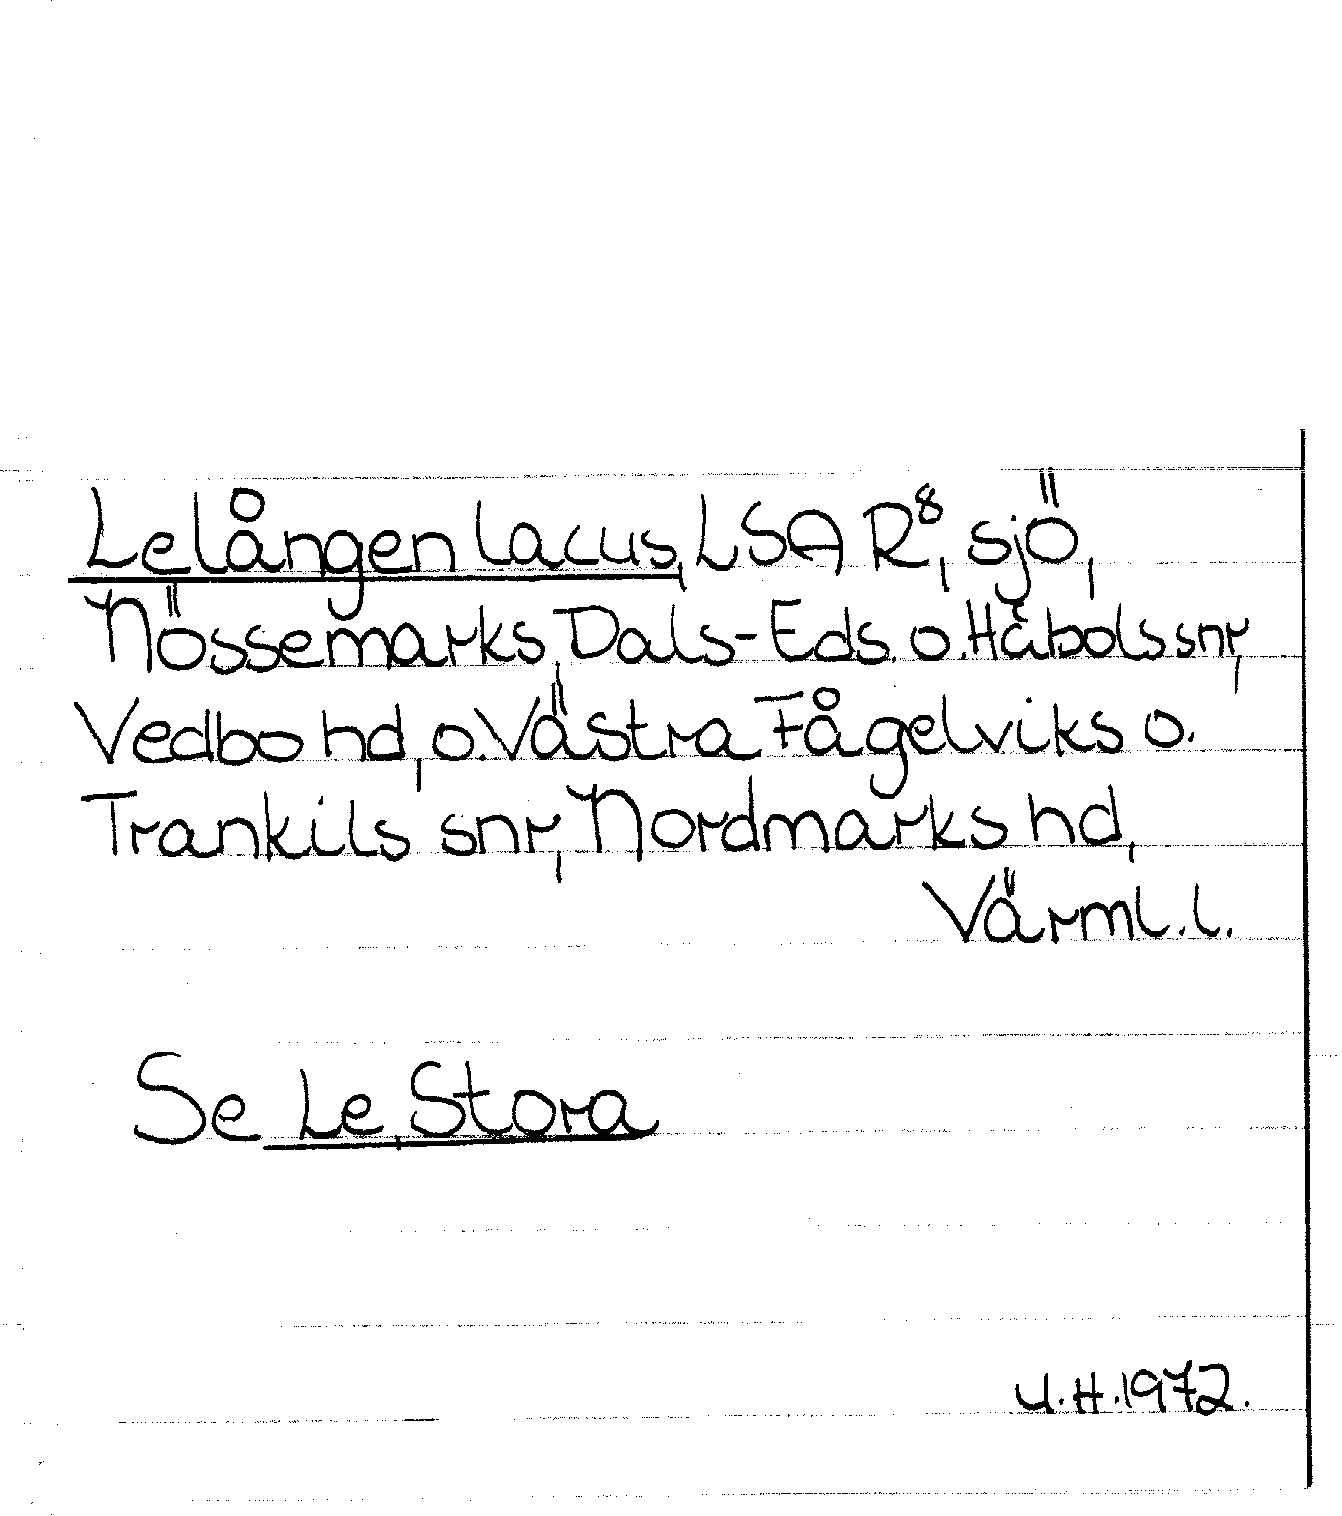 Lelången lacus, LSA R8, sjö,
Nössemarks, Dals-Eds. o. Håbols snr,
Vedbo hd, o. Västra Fågelviks o.
Trankils snr, Nordmarks hd,
Värml. l.
Se Le, Stora
U.H. 1972.